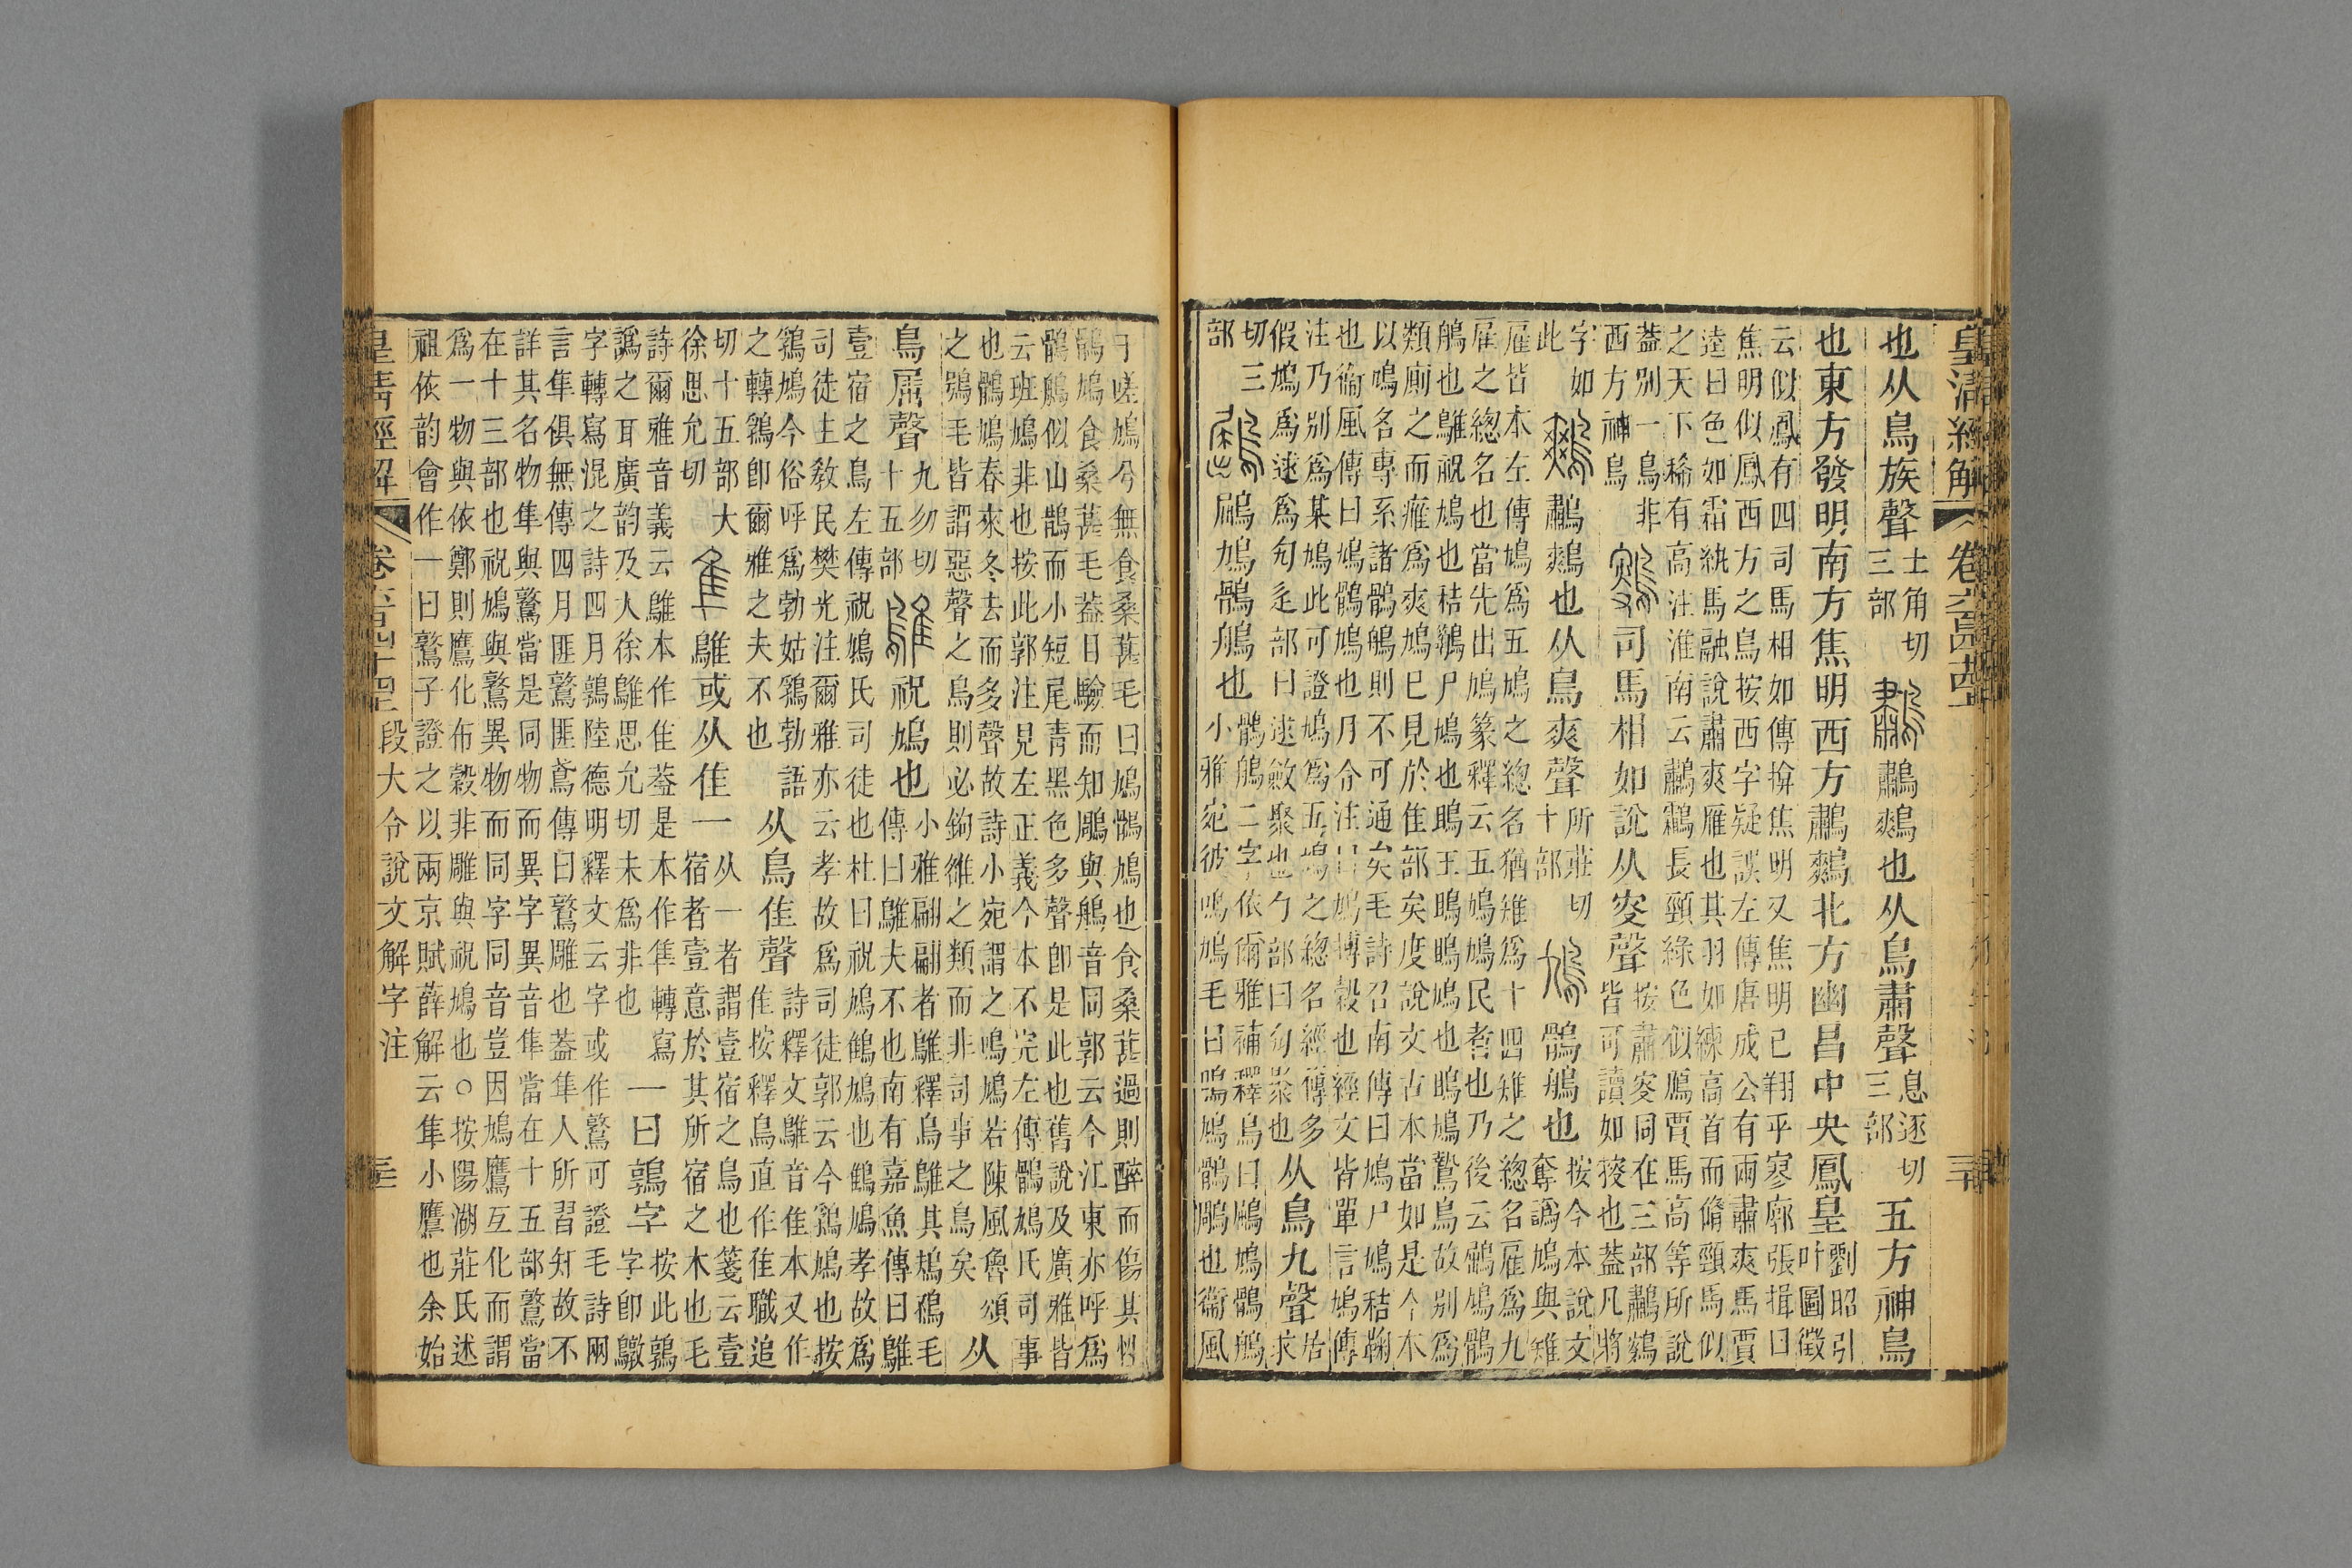 皇清經解 卷六百四十四
也从鳥族聲士角切三部 鷫鷞也从鳥肅聲息逐切三部 五方神鳥
也東方發明南方焦明西方鷫鷞北方幽昌中央鳳皇劉昭引叶圖徵
云似鳳有四司馬相如傳揜焦明又焦明已翔乎寥廓張揖曰
焦明似鳳西方之鳥按西字疑誤左傳唐成公有兩肅爽馬賈
逵曰色如霜紈馬融說肅爽雁也其羽如練高首而脩頸馬似
之天下稀有高注淮南云鷫鷞長頸綠色似鴈賈馬高等所說
葢別一鳥非西方神鳥 司馬相如說从叜聲按肅叜同在三部鷫鷞皆可讀如搜也葢凡將
字如此 鷫鷞也从鳥爽聲所莊切十部 鶻鵃也按今本說文奪譌鳩與雉
雇皆本左傳鳩爲五鳩之總名猶雉爲十四雉之總名雇爲九
雇之總名也當先出鳩篆釋云五鳩鳩民者也乃後云鶻鳩鶻
鵃也鵻祝鳩也秸鶷尸鳩也鴡王鴡鴡鳩也鴡鳩鷙鳥故別爲
類廁之而癰爲爽鳩巳見於隹部矣度說文古本當如是今本
以鳩名專系諸鶻鵃則不可通矣毛詩召南傳曰鳩尸鳩秸鞠
也衞風傳曰鳩鶻鳩也月令注曰鳩博穀也經文皆單言鳩傳
注乃別爲某鳩此可證鳩爲五鳩之總名經傳多
假鳩爲逑爲勼辵部曰逑斂聚也勹部曰勼聚也 从鳥九聲居求
切三部 鶌鳩鶻鵃也鶻鵃二字依爾雅補釋鳥曰鶌鳩鶻鵃
小雅宛彼鳴鳩毛曰鳴鳩鶻鵰也衞風
于嗟鳩兮無食桑葚毛曰鳩鶻鳩也食桑葚過則醉而傷其性
鶻鳩食桑葚毛葢目驗而知鵰與鵃音同郭云今江東亦呼爲
鶻鵃似山鵲而小短尾靑黑色多聲卽是此也舊說及廣雅皆
云班鳩非也按此郭注見左正義今本不完左傳鶻鳩氏司事
也鶻鳩春來冬去而多聲故詩小宛謂之鳴鳩若陳風魯頌
之鴞毛皆謂惡聲之鳥則必鉤雒之類而非司事之鳥矣 从
鳥屈聲九勿切十五部 祝鳩也小雅翩翩者鵻釋鳥鵻其鳺鴀毛
傳曰鵻夫不也南有嘉魚傳曰鵻
壹宿之鳥左傳祝鳩氏司徒也杜曰祝鳩鷦鳩也鷦鳩孝故爲
司徒主敎民樊光注爾雅亦云孝故爲司徒郭云今鶉鳩也按
鶉鳩今俗呼爲勃姑鶉勃語
之轉鶉卽爾雅之夫不也 从鳥隹聲詩釋文鵻音隹本又作
隹按釋鳥直作隹職追
切十五部大徐思允切 鵻或从隹一从一者謂壹宿之鳥也箋云壹
宿者壹意於其所宿之木也毛
詩爾雅音義云鵻本作隹葢是本作隼轉寫
譌之耳廣韵及大徐鵻思允切未爲非也 一曰鶉字按此鶉字卽鷻
字轉寫混之詩四月鶉陸德明釋文云字或作鷻可證毛詩兩
言隼俱無傳四月匪鷻匪鳶傳曰鷻雕也葢隼人所習知故不
詳其名物隼與鷻當是同物而異字異音隼當在十五部鷻當
在十三部也祝鳩與鷻異物而同字同音豈因鳩鷹互化而謂
爲一物與依鄭則鷹化布穀非雕與祝鳩也○按陽湖莊氏述
祖依韵會作一曰鷻子證之以兩京賦薛解云隼小鷹也余始
皇清經解 卷六百四十四 段大令說文解字注